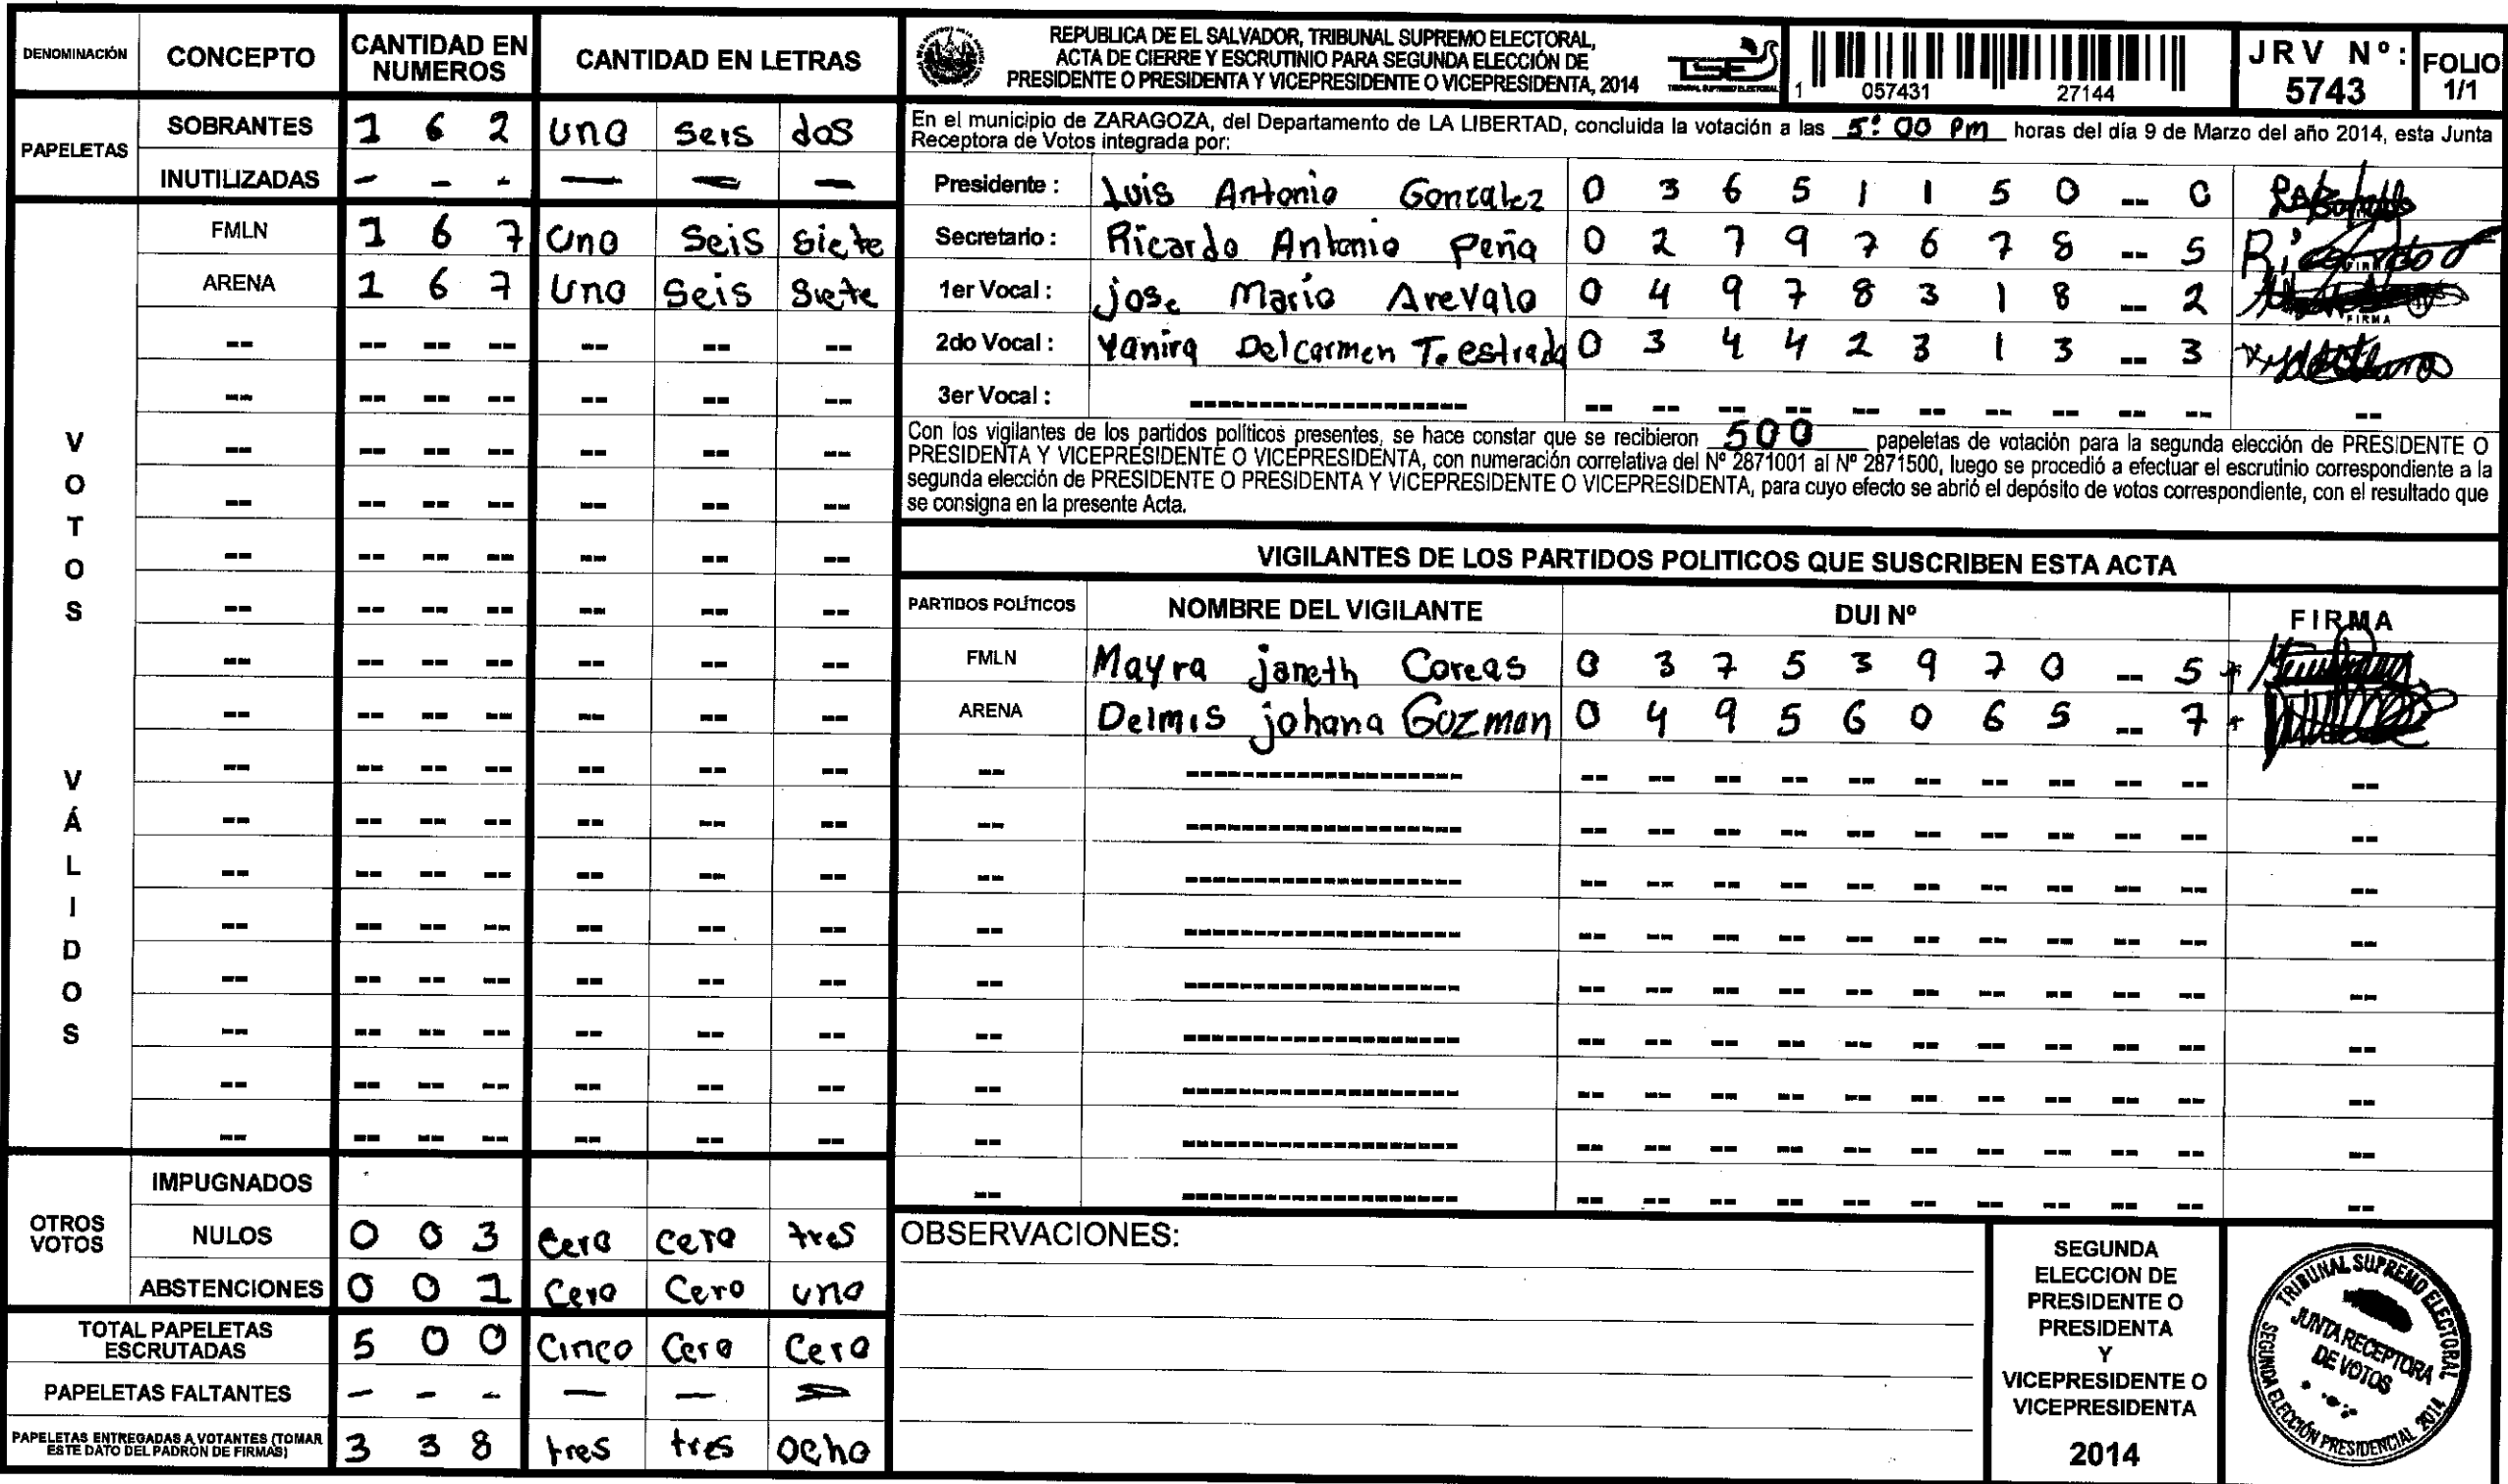 DENOMINACIÓN CONCEPTO CANTIDAD EN NUMEROS CANTIDAD EN LETRAS
PAPELETAS
SOBRANTES 1 6 2 uno seis dos
INUTILIZADAS - - - — — —
VOTOS VÁLIDOS
FMLN 1 6 7 Uno Seis Siete
ARENA 1 6 7 Uno Seis Siete
OTROS VOTOS
IMPUGNADOS
NULOS 0 0 3 Cero cero tres
ABSTENCIONES 0 0 1 Cero Cero uno
TOTAL PAPELETAS ESCRUTADAS 5 0 0 Cinco Cero Cero
PAPELETAS FALTANTES - - - — — —
PAPELETAS ENTREGADAS A VOTANTES (TOMAR ESTE DATO DEL PADRÓN DE FIRMAS) 3 3 8 tres tres ocho
REPUBLICA DE EL SALVADOR, TRIBUNAL SUPREMO ELECTORAL,
ACTA DE CIERRE Y ESCRUTINIO PARA SEGUNDA ELECCIÓN DE
PRESIDENTE O PRESIDENTA Y VICEPRESIDENTE O VICEPRESIDENTA, 2014
TSE
TRIBUNAL SUPREMO ELECTORAL
1 057431 27144
JRV Nº: 5743
FOLIO 1/1
En el municipio de ZARAGOZA, del Departamento de LA LIBERTAD, concluida la votación a las 5:00 Pm horas del día 9 de Marzo del año 2014, esta Junta
Receptora de Votos integrada por:
Presidente : Luis Antonio Gonzalez 0 3 6 5 1 1 5 0 -- 0
Secretario : Ricardo Antonio Peña 0 2 7 9 7 6 7 8 -- 5
1er Vocal : jose Mario Arevalo 0 4 9 7 8 3 1 8 -- 2
FIRMA
2do Vocal : Yanira Del carmen T. estrada 0 3 4 4 2 3 1 3 -- 3
3er Vocal : --------------------
Con los vigilantes de los partidos políticos presentes, se hace constar que se recibieron 500 papeletas de votación para la segunda elección de PRESIDENTE O
PRESIDENTA Y VICEPRESIDENTE O VICEPRESIDENTA, con numeración correlativa del Nº 2871001 al Nº 2871500, luego se procedió a efectuar el escrutinio correspondiente a la
segunda elección de PRESIDENTE O PRESIDENTA Y VICEPRESIDENTE O VICEPRESIDENTA, para cuyo efecto se abrió el depósito de votos correspondiente, con el resultado que
se consigna en la presente Acta.
VIGILANTES DE LOS PARTIDOS POLITICOS QUE SUSCRIBEN ESTA ACTA
PARTIDOS POLÍTICOS NOMBRE DEL VIGILANTE DUI Nº FIRMA
FMLN Mayra janeth Coreas 0 3 7 5 3 9 7 0 -- 5
ARENA Delmis johana Guzman 0 4 9 5 6 0 6 5 -- 7
OBSERVACIONES:
SEGUNDA
ELECCION DE
PRESIDENTE O
PRESIDENTA
Y
VICEPRESIDENTE O
VICEPRESIDENTA
2014
TRIBUNAL SUPREMO ELECTORAL
JUNTA RECEPTORA
DE VOTOS
SEGUNDA ELECCIÓN PRESIDENCIAL 2014